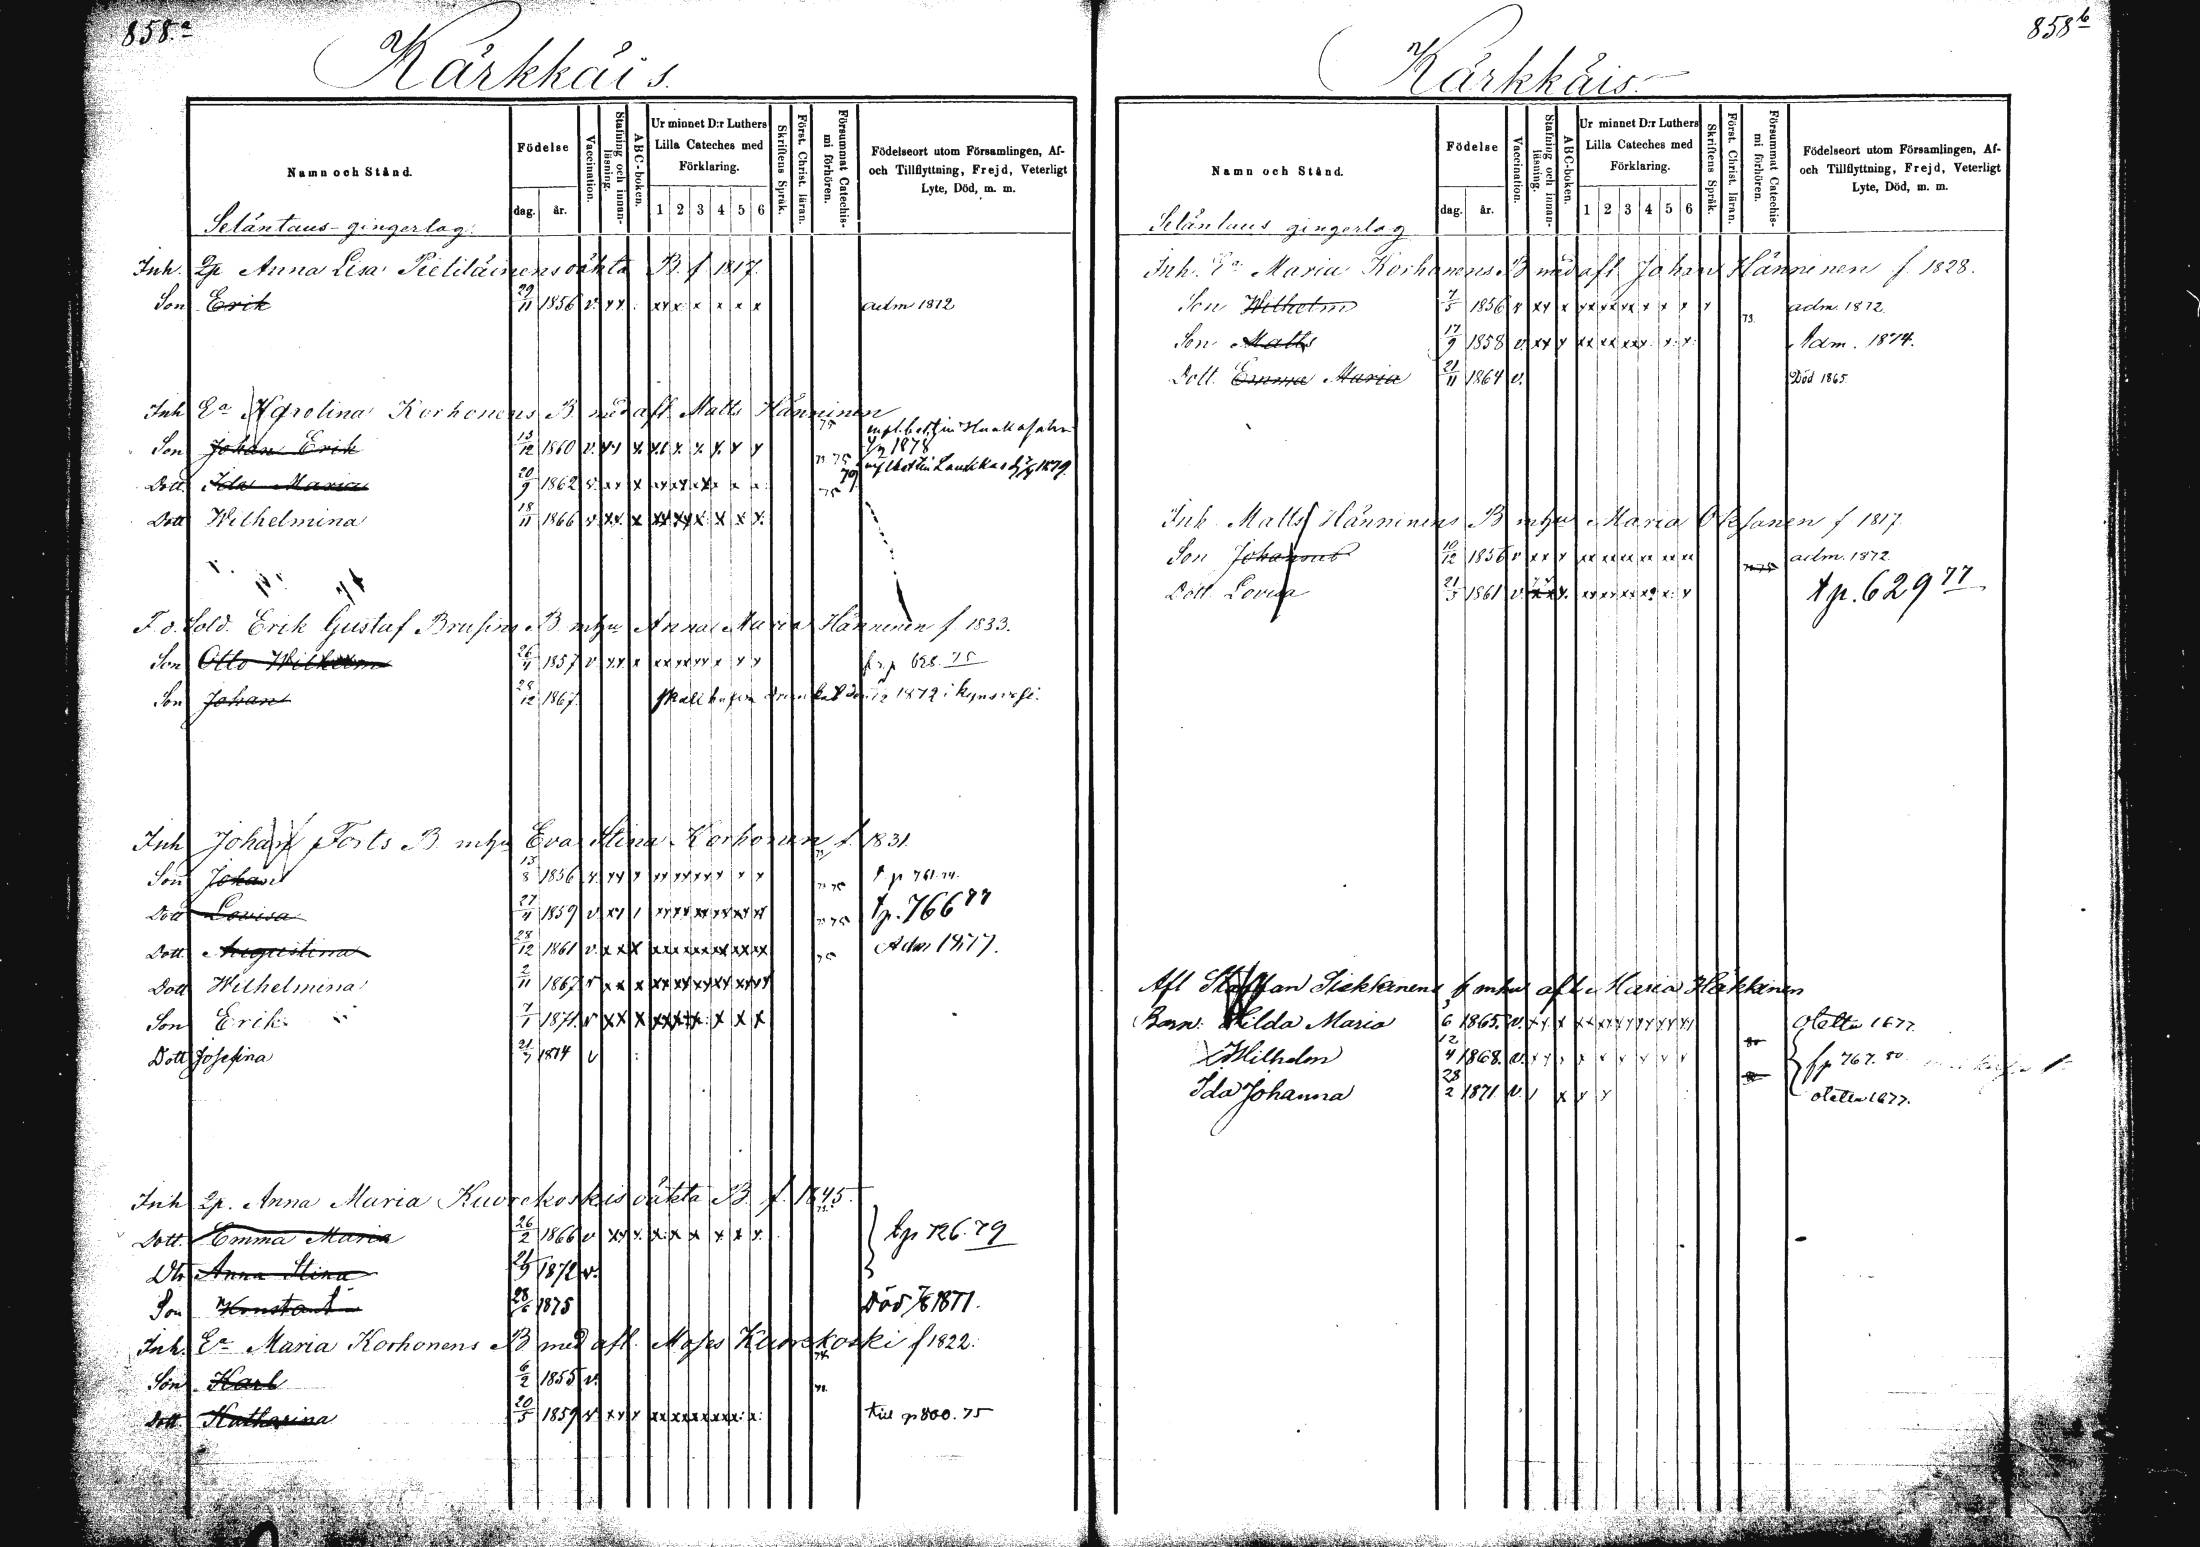 858.a
Kärkkäis.
Namn och Stånd.
Födelse
dag.
år.
Vaccination.
Stafning och innanläsning.
ABC-boken.
Ur minnet D:r Luthers Lilla Cateches med Förklaring.
1 2 3 4 5 6
Skriftens Språk.
Först. Christ. läran.
Försummat Catechismi förhören.
Födelseort utom Församlingen, Af- och Tillflyttning, Frejd, Veterligt Lyte, Död, m. m.
Seläntaus gingerlag.
Inh. Qp Anna Lisa Pietiläinens oäkta B. f 1817.
Son Erik 29/11 1856 v. adm 1872
Inh Ea Karolina Korhonens B. med afl. Matts Hänninen
Son Johan Erik 13/12 1860 v. 1878
Dott. Ida Maria 20/9 1862 v. 1879.
Dott Wilhelmina 18/11 1866 v
F. d. Sold. Erik Gustaf Brusins B. mhu Anna Maria Hänninen f. 1833.
Son Otto Wilhelm 26/4 1857 v 75
Son Johan 28/12 1867. 1872 i
Inh Johan Forts B. mhu Eva Stina Korhonen f. 1831.
Son Johan 13/8 1856 v. t. p 761.74.
Dott Lovisa 27/4 1859 v. tp. 766 77
Dott Augustina 28/12 1861 v. Adm 1877.
Dott Wilhelmina 2/11 1867 v
Son Erik 7/1 1871. v
Dott Josefina 21/7 1874 v
Inh Qp. Anna Maria Kuorekoskis oäkta B. f. 1845.
Dott. Emma Maria 26/2 1866 v tp 726.79
Dtr Anna Stina 21/9 1872 v.
Son Konstant 28 1875 Död 7/8 1877.
Inh. Ea Maria Korhonens B med afl. Moses Kuorekoski f 1822.
Son Karl 6/2 1855 v.
Dott. Katharina 20/5 1859 v till p 800.75
858 b
Kärkkäis.
Namn och Stånd.
Födelse
dag.
år.
Vaccination.
Stafning och innanläsning.
ABC-boken.
Ur minnet D:r Luthers Lilla Cateches med Förklaring.
1 2 3 4 5 6
Skriftens Språk.
Först. Christ. läran.
Försummat Catechismi förhören.
Födelseort utom Församlingen, Af- och Tillflyttning, Frejd, Veterligt Lyte, Död, m. m.
Seläntaus gingerlag
Inh. Ea Maria Korhonens B med afl. Johan Hänninen f. 1828.
Son Wilhelm 7/5 1856 v adm. 1872.
Son Matts 17/9 1858 v. Adm. 1874.
Dott. Emma Maria 21/11 1864 v. Död 1865.
Inh Matts Hänninens B mhu Maria Oksanen f 1817.
Son Johannes 10/12 1856 v adm. 1872
Dott Lovisa 21/5 1861 v. tp. 629 77
Afl Staffan Siekkinens b mhu afl Maria Häkkinen
Barn: Hilda Maria 3/6 1865. v. 1877.
Wilhelm 12/4 1868. v. fp 767. 80
Ida Johanna 28/2 1871 v. 1877.